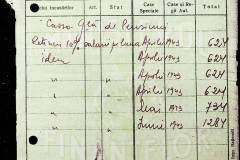 încasărilor Art. St. Case Speciale Case și Regii Aut. Total
"Casa Glă de Pensiuni
Rețineri 10% salarii pe luna Aprilie 1943 624
idem Aprilie 1943 624
" " Aprilie 1943 624
" " Aprilie 1943 624
" " Mai 1943 734
" " Iunie 1943 1284